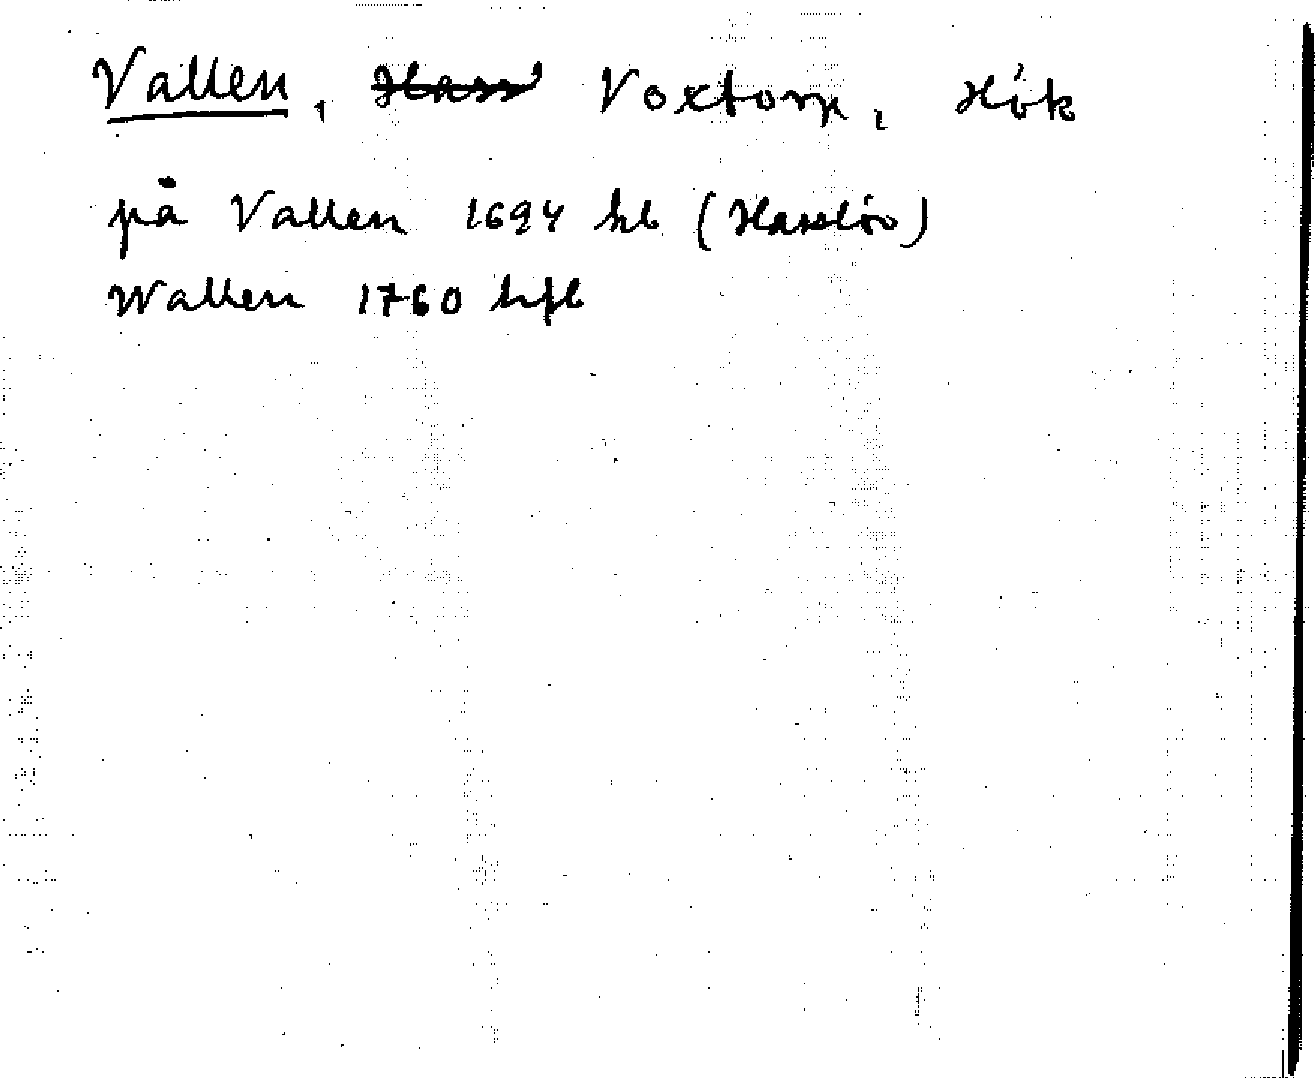 Vallen, Hass Voxtorp, Hök
på Vallen 1694 hb (Hasslöv)
Wallen 1760 hfl